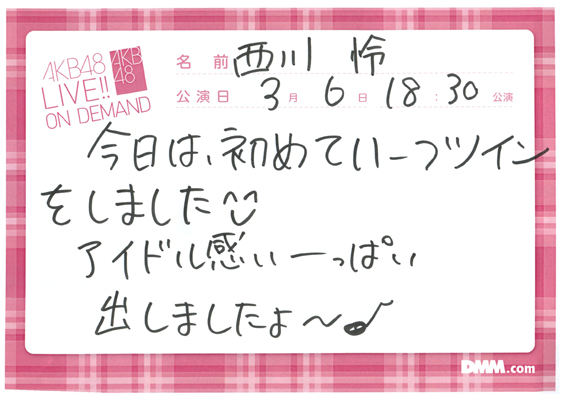 AKB48
LIVE!!
ON DEMAND
AKB
48
名前 西川 怜
公演日 3月 6日 18:30 公演
今日は、初めてい一つツイン
をしました
アイドル感いーっぱい
出しましたよ〜♪
DMM.com